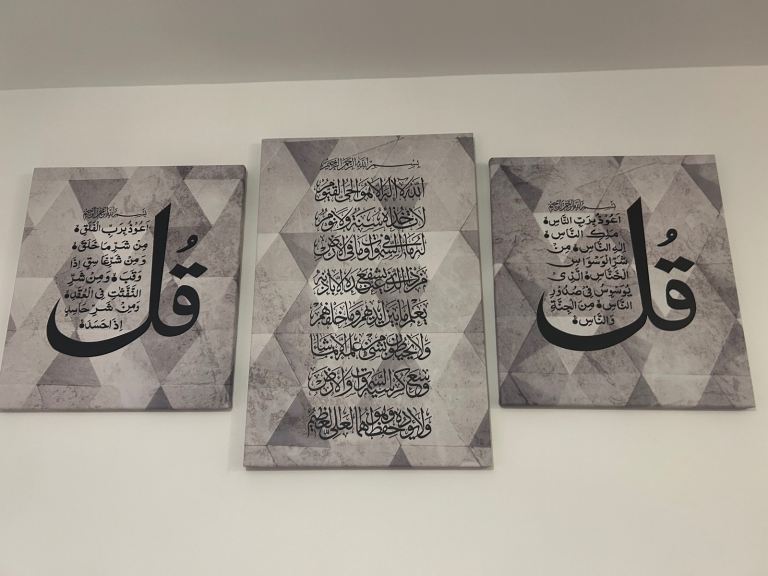 بسم الله الرحمن الرحيم
قُل
اَعُوذُ بِرَبِّ الْفَلَقِ
مِن شَرِّ مَا خَلَقَ
وَمِن شَرِّ غَاسِقٍ إِذَا
وَقَبَ وَمِن شَرِّ
النَّفَّٰثَٰتِ فِي الْعُقَدِ
وَمِنْ شَرِّ حَاسِدٍ
إِذَا حَسَدَ
بسم الله الرحمن الرحيم
الله لا إله إلا هو الحي القيوم
لا تأخذه سنة ولا نوم
له ما في السموات وما في الأرض
من ذا الذي يشفع عنده إلا بإذنه
يعلم ما بين أيديهم وما خلفهم
ولا يحيطون بشيء من علمه إلا بما شاء
وسع كرسيه السموات والأرض
ولا يؤوده حفظهما وهو العلي العظيم
بسم الله الرحمن الرحيم
قُل
اَعُوذُ بِرَبِّ النَّاسِ
مَلِكِ النَّاسِ
إِلَٰهِ النَّاسِ مِنْ
شَرِّ الْوَسْوَاسِ
الْخَنَّاسِ الَّذِي
يُوَسْوِسُ فِي صُدُورِ
النَّاسِ مِنَ الْجِنَّةِ
وَالنَّاسِ